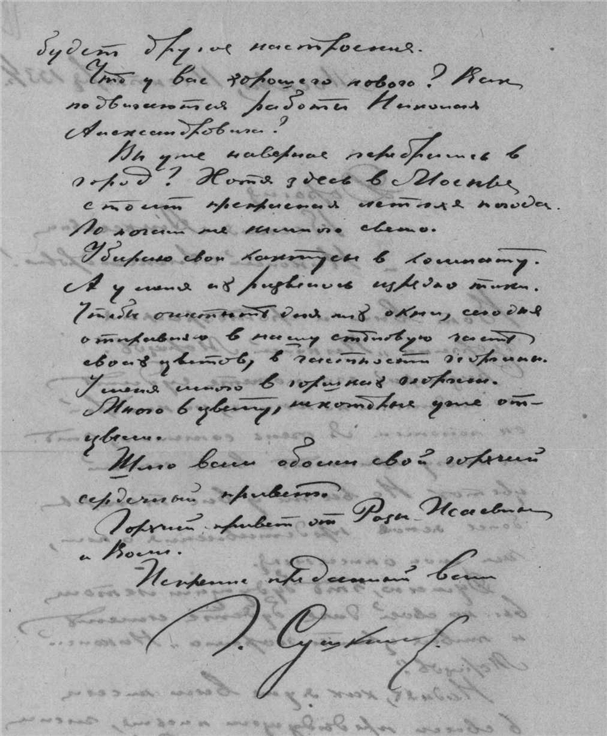 будет другое настроение.
Что у вас хорошего нового? Как
подвигаются работы Николая
Александровича?
Вы уже наверное перебрались в
город? Хотя здесь в Москве
стоит прекрасная летняя погода.
Но ночи не немного свежо.
Убираю свои кактусы в комнату.
А у меня их развелось изрядно таки.
Чтобы очистить для них окна, сегодня
отправляю в нашу столовую часть
своих цветов, в частности глоксинии.
У меня много в горшках
Много в цвету, некоторые уже от-
цвели.
Шлю вам обоим свой горячий
сердечный привет
Горячий привет от Розы Исаевны
и Вовы.
Искренне преданный вам